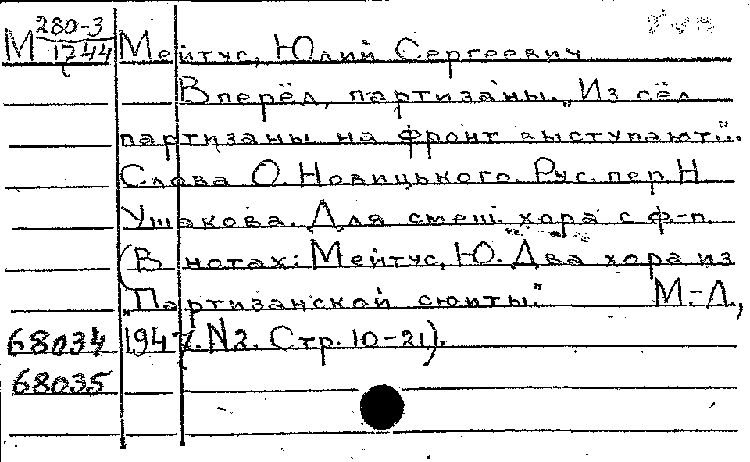 М 280-3/1744 Мейтус, Юлий Сергеевич
Вперёд, партизаны. „Из сёл
партизаны на фронт выступают...".
Слова О. Новицького. Рус. пер. Н.
Ушакова. Для смеш. хора с ф-п.
(В нотах: Мейтус, Ю. Два хора из
„Партизанской сюиты." М.-Л.,
68034 1947. N2. Стр. 10-21).
68035